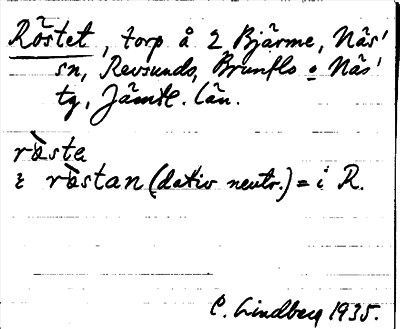 Röstet, torp å 2 Bjärme, Näs'
sn, Revsunds, Brunflo o Näs'
tg, Jämtl. län.
ræ̀ste
i ræ̀stan (dativ neutr.) = i R.
C. Lindberg 1935.